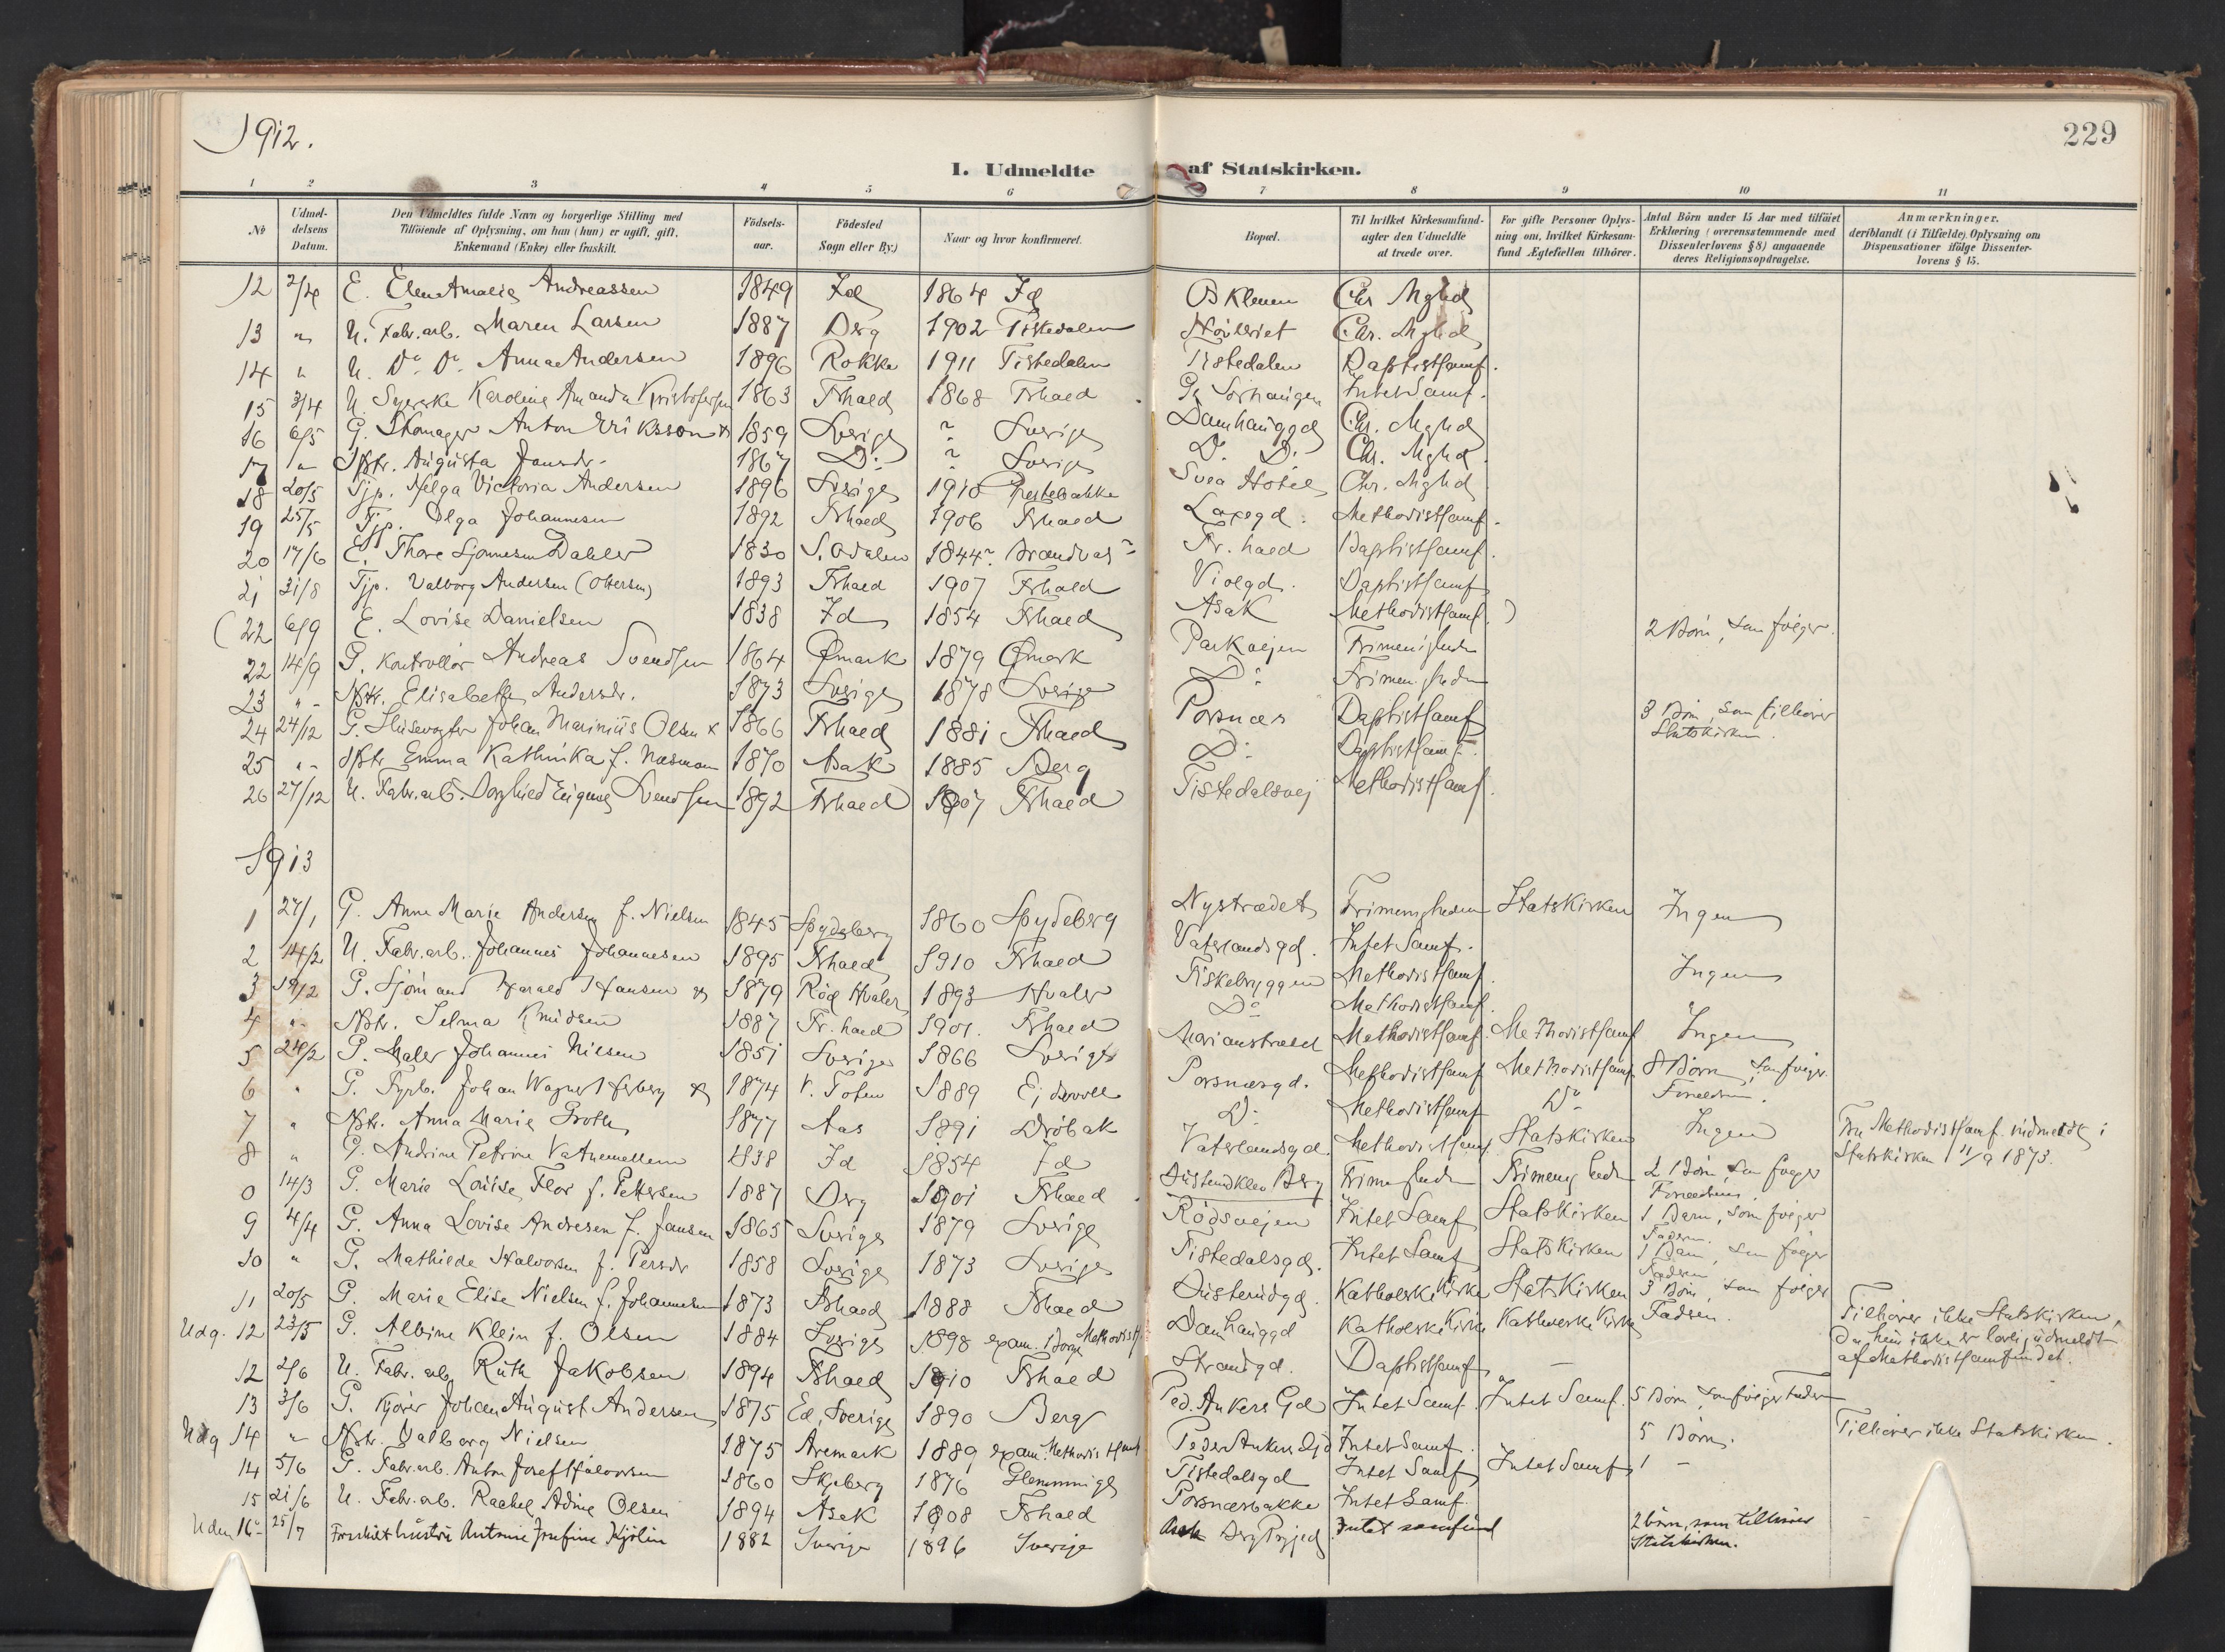 1912.
229
I. Udmeldte af Statskirken.
1 2 3 4 5 6 7 8 9 10 11
No
Udmeldelsens Datum.
Den Udmeldtes fulde Navn og borgerlige Stilling med Tilføiende af Oplysning, om han (hun) er ugift, gift, Enkemand (Enke) eller fraskilt.
Fødselsaar.
Fødested Sogn eller By.)
Naar og hvor konfirmeret.
Bopæl.
Til hvilket Kirkesamfund agter den Udmeldte at træde over.
For gifte Personer Oplysning om, hvilket Kirkesamfund Ægtefællen tilhører.
Antal Börn under 15 Aar med tilføiet Erklæring (overensstemmende med Dissenterlovens § 8) angaaende deres Religionsopdragelse.
Anmærkninger, deriblandt (i Tilfælde) Oplysning om Dispensationer ifølge Dissenterlovens § 15.
12 2/4 E. Elen Amalie Andreassen 1849 Id 1864 Id Chr Mghd
13 " U. Fabr.arb. Maren Larsen 1887 Berg 1902 Tistedalen Chr. Mghd
14 " U. Do Do Anna Andersen 1896 Rokke 1911 Tistedalen Tistedalen Baptistsamf.
15 3/4 U. Syerske Karoline Amanda Kristofersen 1863 Frhald 1868 Frhald Intet Samf.
16 6/5 G. Skomager Anton Eriksson 1859 Sverige ? Sverige Damhauggd Chr. Mghd
17 " Hstr. Augusta Jansdr. 1867 Do ? Sverige Do Do Chr. Mghd
18 20/5 Tjp. Helga Victoria Andersen 1896 Sverige 1910 Prestebakke Svea Hotel Chr. Mghd
19 25/5 Tjp. Olga Johannesen 1892 Frhald 1906 Frhald Methodistsamf.
20 17/6 E. Thore Dahler 1830 S. Odalen 1844? Brandval? Fr. hald Baptistsamf.
21 31/8 Tjp. Valborg Andersen (Ottersen) 1893 Frhald 1907 Frhald Violgd. Baptistsamf
(22 6/9 E. Lovise Danielsen 1838 Id 1854 Frhald Asak Methodistsamf.)
22 14/9 G. Kontrollør Andreas Svendsen 1864 Ømark 1879 Ømark Parkvejen Frimenigheden 2 Børn, som følger.
23 " Hstr. Elisabeth Andersdr. 1873 Sverige 1878 Sverige Do Frimenigheden
24 24/12 G. Slusevogter Johan Marinius Olsen x 1866 Frhald 1881 Frhald Porsnæs Baptistsamf 3 Børn, som tilhører Statskirken.
25 " Hstr Emma Kathinka f. Næsmoen 1870 Asak 1885 Berg Do Baptistsamf.
26 27/12 U. Fabr.arb. Borghild Svendsen 1892 Frhald 1907 Frhald Tistedalsvej Methodistsamf.
1913
1 27/1 G. Anne Marie Andersen f. Nielsen 1845 Spydeberg 1860 Spydeberg Nystrædet Frimenigheden Statskirken Ingen
2 14/2 U. Fabr.arb. Johannes Johannesen 1895 Frhald 1910 Frhald Vaterlandsgd. Intet Samf.
3 19/2 G. Sjømand Harald Hansen 1879 Rød Hvaler 1893 Hvaler Fiskebryggen Methodistsamf. Ingen
4 " Hstr. Selma Knudsen 1887 Fr. hald 1901. Frhald Do Methodistsamf.
5 24/2 G. Maler Johannes Nilsen 1851 Sverige 1866 Sverige Marianstrædet Methodistsamf. Methodistsamf Ingen
6 " G. Fyrb. Johan Wagner 1874 V. Toten 1889 Ejdsvoll Porsnæsgd. Methodistsamf Methodistsamf 8 Børn, som følger Forældrene.
7 " Hstr. Anna Marie Groth 1877 Aas 1891 Drøbak Do Methodistsamf Do
8 " G. Andrine Petrine Vatnemellem 1838 Id 1854 Id Vaterlandsgd. Methodistsamf Statskirken Ingen Fra Methodistsamf. indmeldt i Statskirken 11/9 1873.
0 14/3 G. Marie Louise Flor f. Pettersen 1887 Berg 1901 Frhald Berg Frimenigheden Frimenigheden 2 Børn, som følger Forældrene.
9 4/4 G. Anna Lovise Andresen f. Jansen 1865 Sverige 1879 Sverige Rødsvejen Intet Samf Statskirken 1 Barn, som følger Faderen.
10 " G. Mathilde Halvorsen f. Persdr 1858 Sverige 1873 Sverige Tistedalsgd. Intet Samf. Statskirken 1 Barn, som følger Faderen
11 20/5 G. Marie Elise Nielsen f. Johannesen 1873 Frhald 1888 Frhald Katholske Kirke Statskirken 3 Børn, som følger Faderen.
Udg. 12 23/5 G. Albine Klein f. Olsen 1884 Sverige 1898 exam. i Borge Methodists. Damhauggd Katholske Kirke Katholske Kirke Tilhører ikke Statskirken, da hun ikke er lovlig udmeldt af Methodistsamfundet.
12 2/6 U. Fabr.arb. Ruth Jakobsen 1894 Frhald 1910 Frhald Strandgd. Baptistsamf. —
13 3/6 G. Kjører Johan August Andersen 1875 Ed, Sverige 1890 Berg Ped. Ankers Gd Intet Samf. Intet Samf. 5 Børn, som følger Faderen
Udg 14 " Hstr. Valborg Nielsen 1875 Aremark 1889 exam. Methodistsamf Peder Ankers Gd Intet Samf. 5 Børn. Tilhører ikke Statskirken.
14 5/6 G. Fabr.arb. Anton Josef Halvorsen 1860 Skjeberg 1876 Glemminge Tistedalsgd Intet Samf. Intet Samf. 1 —
15 21/6 U. Fabr.arb. Rachel Adine Olsen 1894 Asak 1908 Frhald Porsnæsbakke Intet Samf.
Udm 16 25/7 Fraskilt hustru Antonie Josefine Kjölin 1882 Sverige 1896 Sverige Berg Prgjeld Intet samfund 2 börn, som tilhører Statskirken.